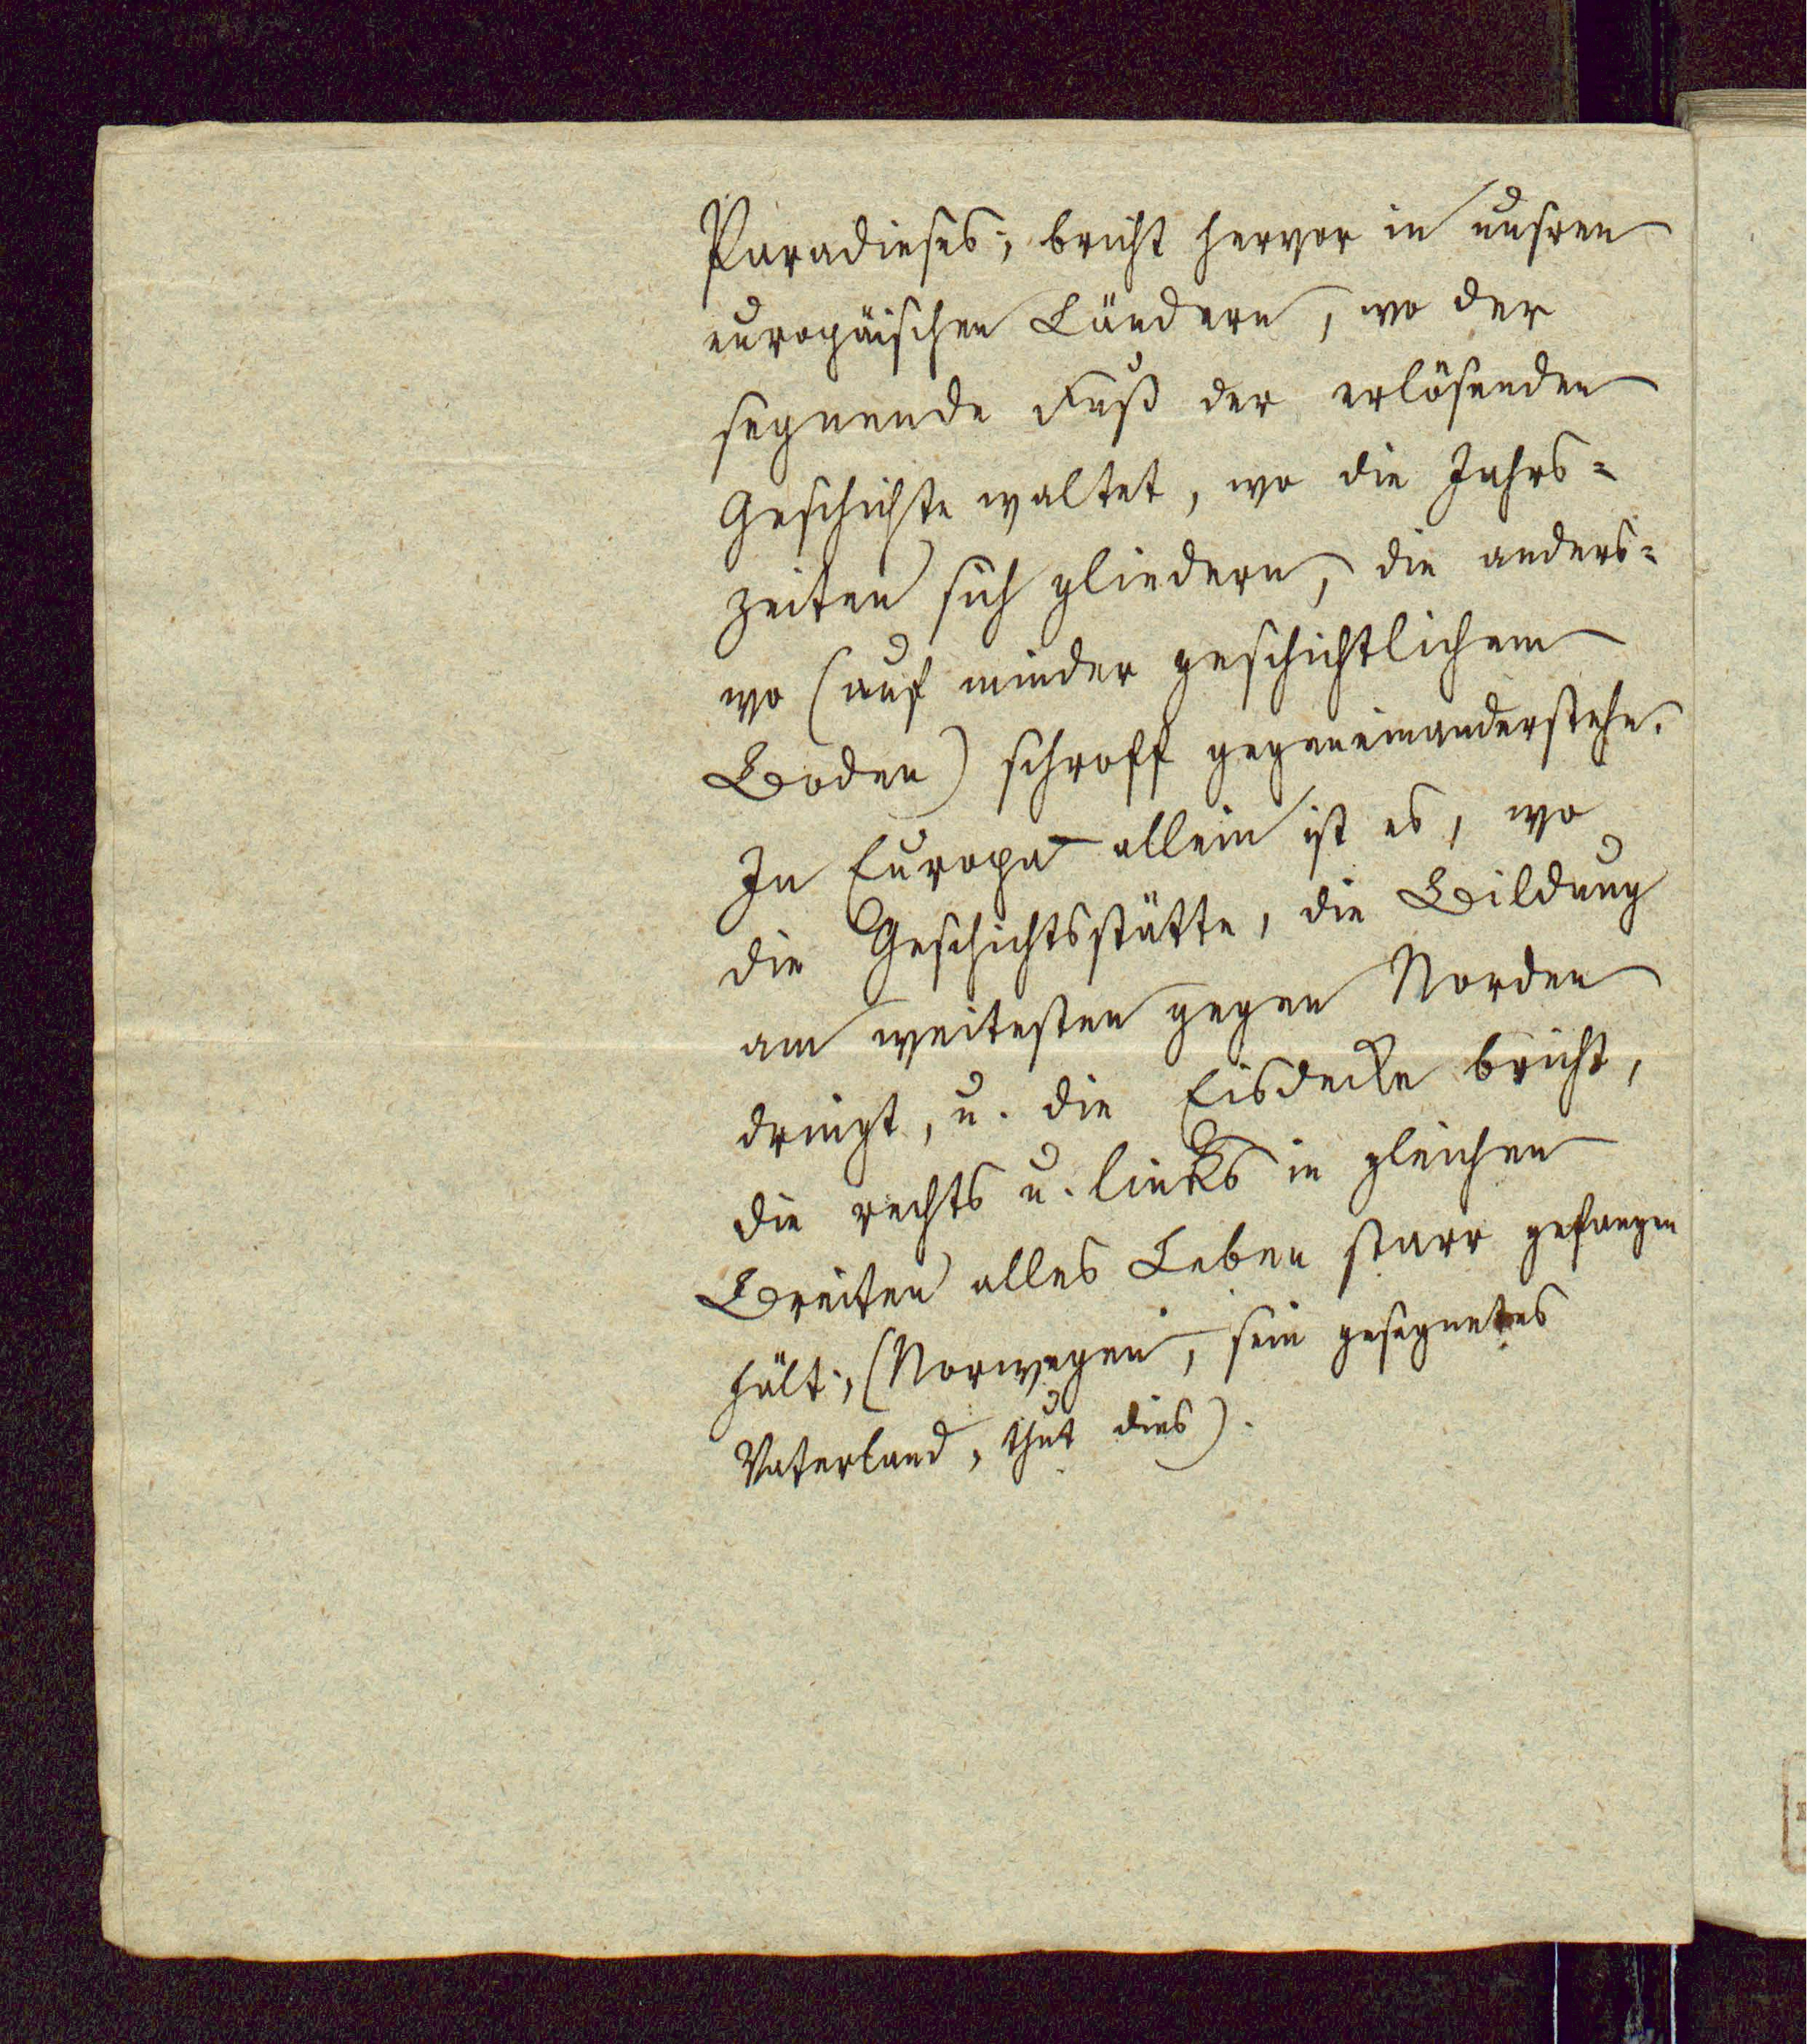 Paradieses; bricht hervor in unsren
europäischen Ländern, wo der
segnende Fuß der erlösenden
Geschichte waltet, wo die Jahrs=
zeiten sich gliedern, die anders=
wo (auf minder geschichtlichem
Boden) schroff gegeneinanderstehn.
In Europa allein ist es, wo
die Geschichtsstätte, die Bildung
am weitesten gegen Norden
dringt, u. die Eisdecke bricht,
die rechts u. links in gleichen
Breiten alles Leben starr gefangen
hält; (Norwegen, sein gesegnetes
Vaterland, thut dies).